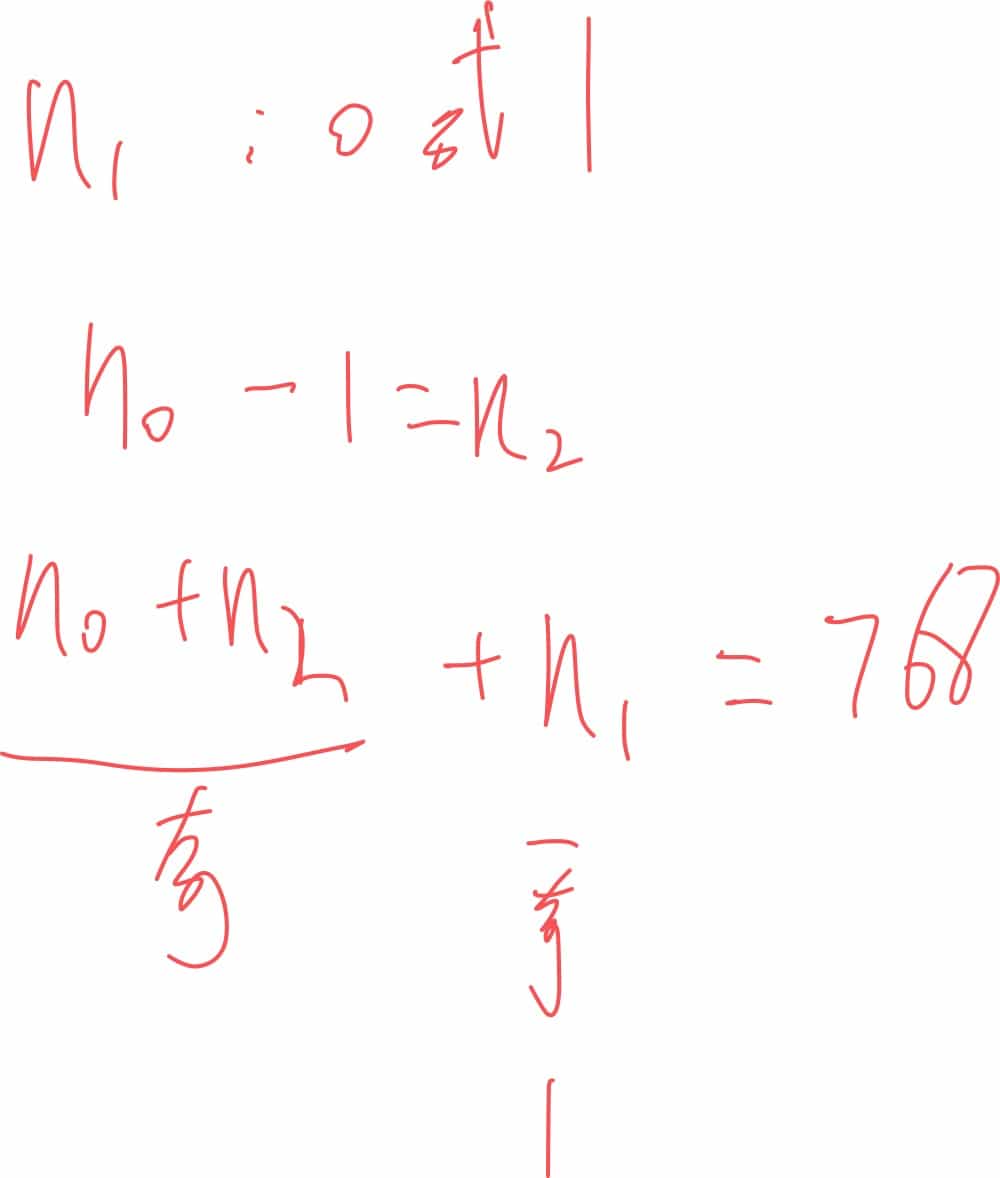 n₁ : 0 或 1
n₀ - 1 = n₂
n₀ + n₂ + n₁ = 768
奇
一奇
1